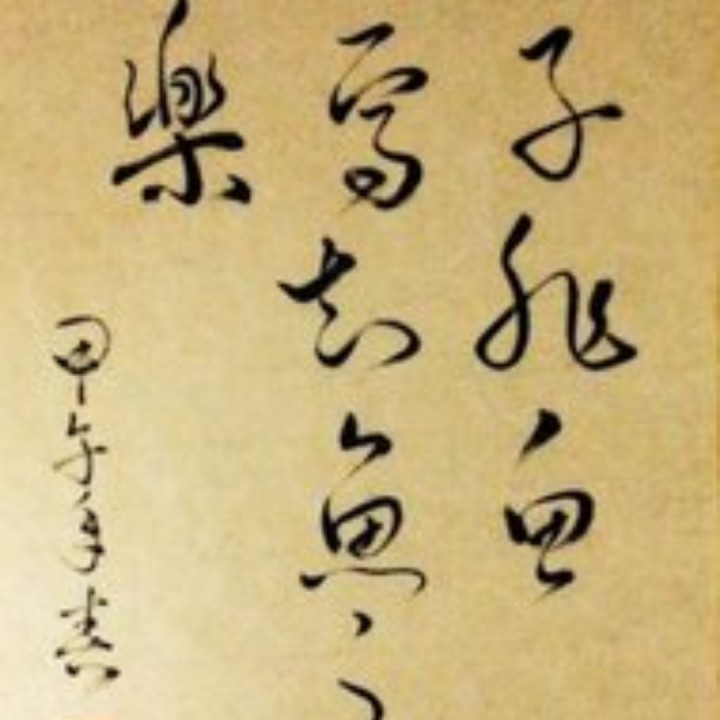 子非魚
焉知魚之
樂
甲午年書